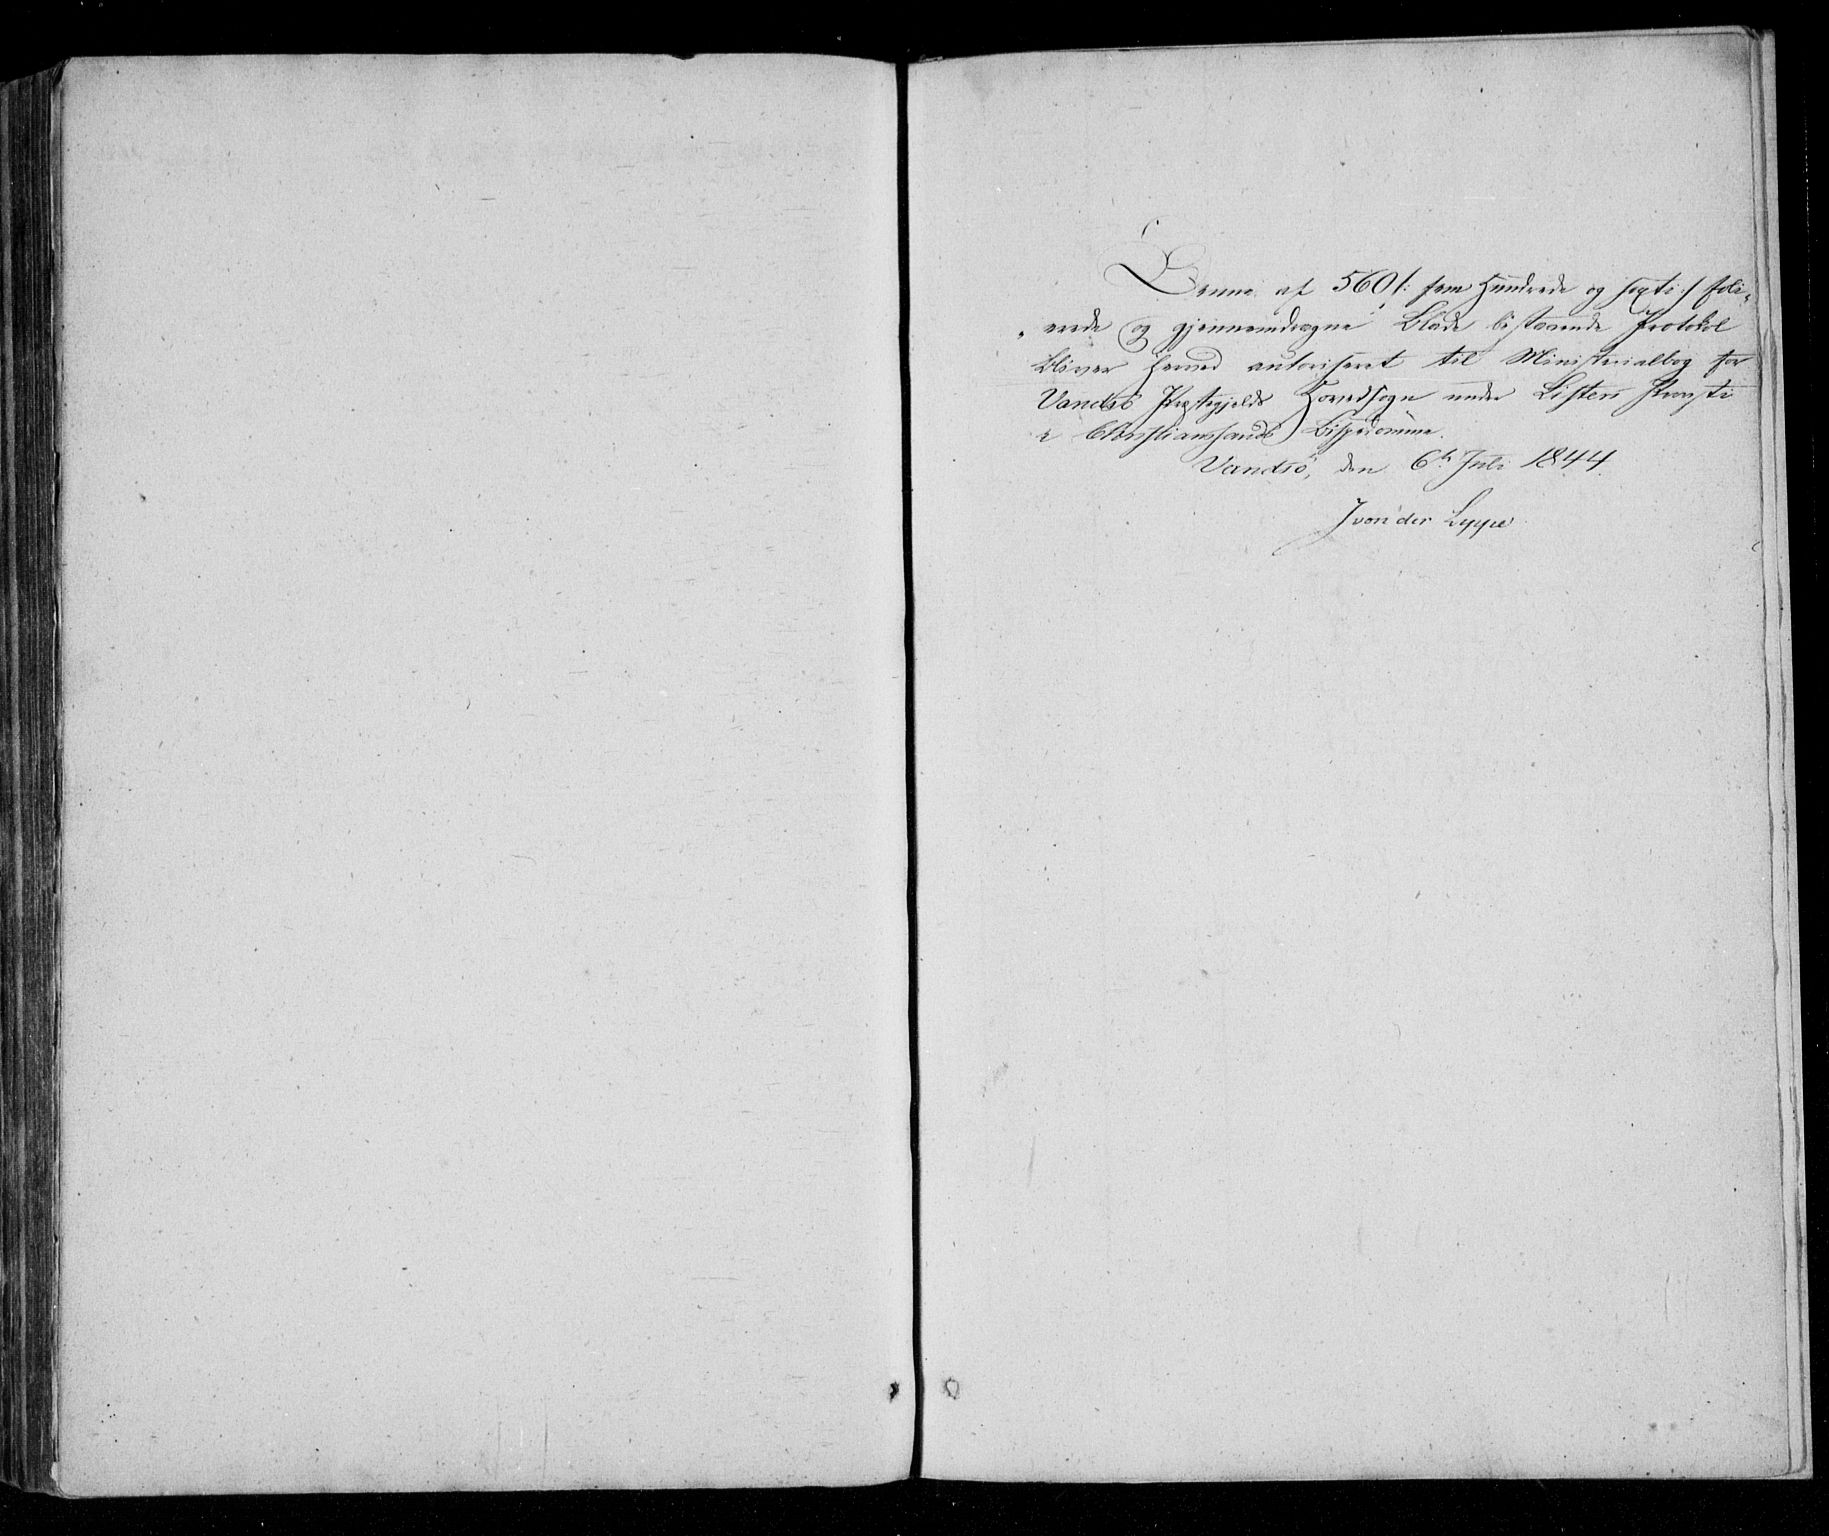 Denne af 560 /: fem Hundrede og sexti :/ foli-
erede og gjennemdragne Blade bestaaende Protokol
bliver herved autoriseret til Ministerialbog for
Vandsö Præstegjelds Hovedsogn under Listers Provsti
i Christianssands Bispedömme.
Vandsö, den 6te Juli 1844.
J von der Lippe